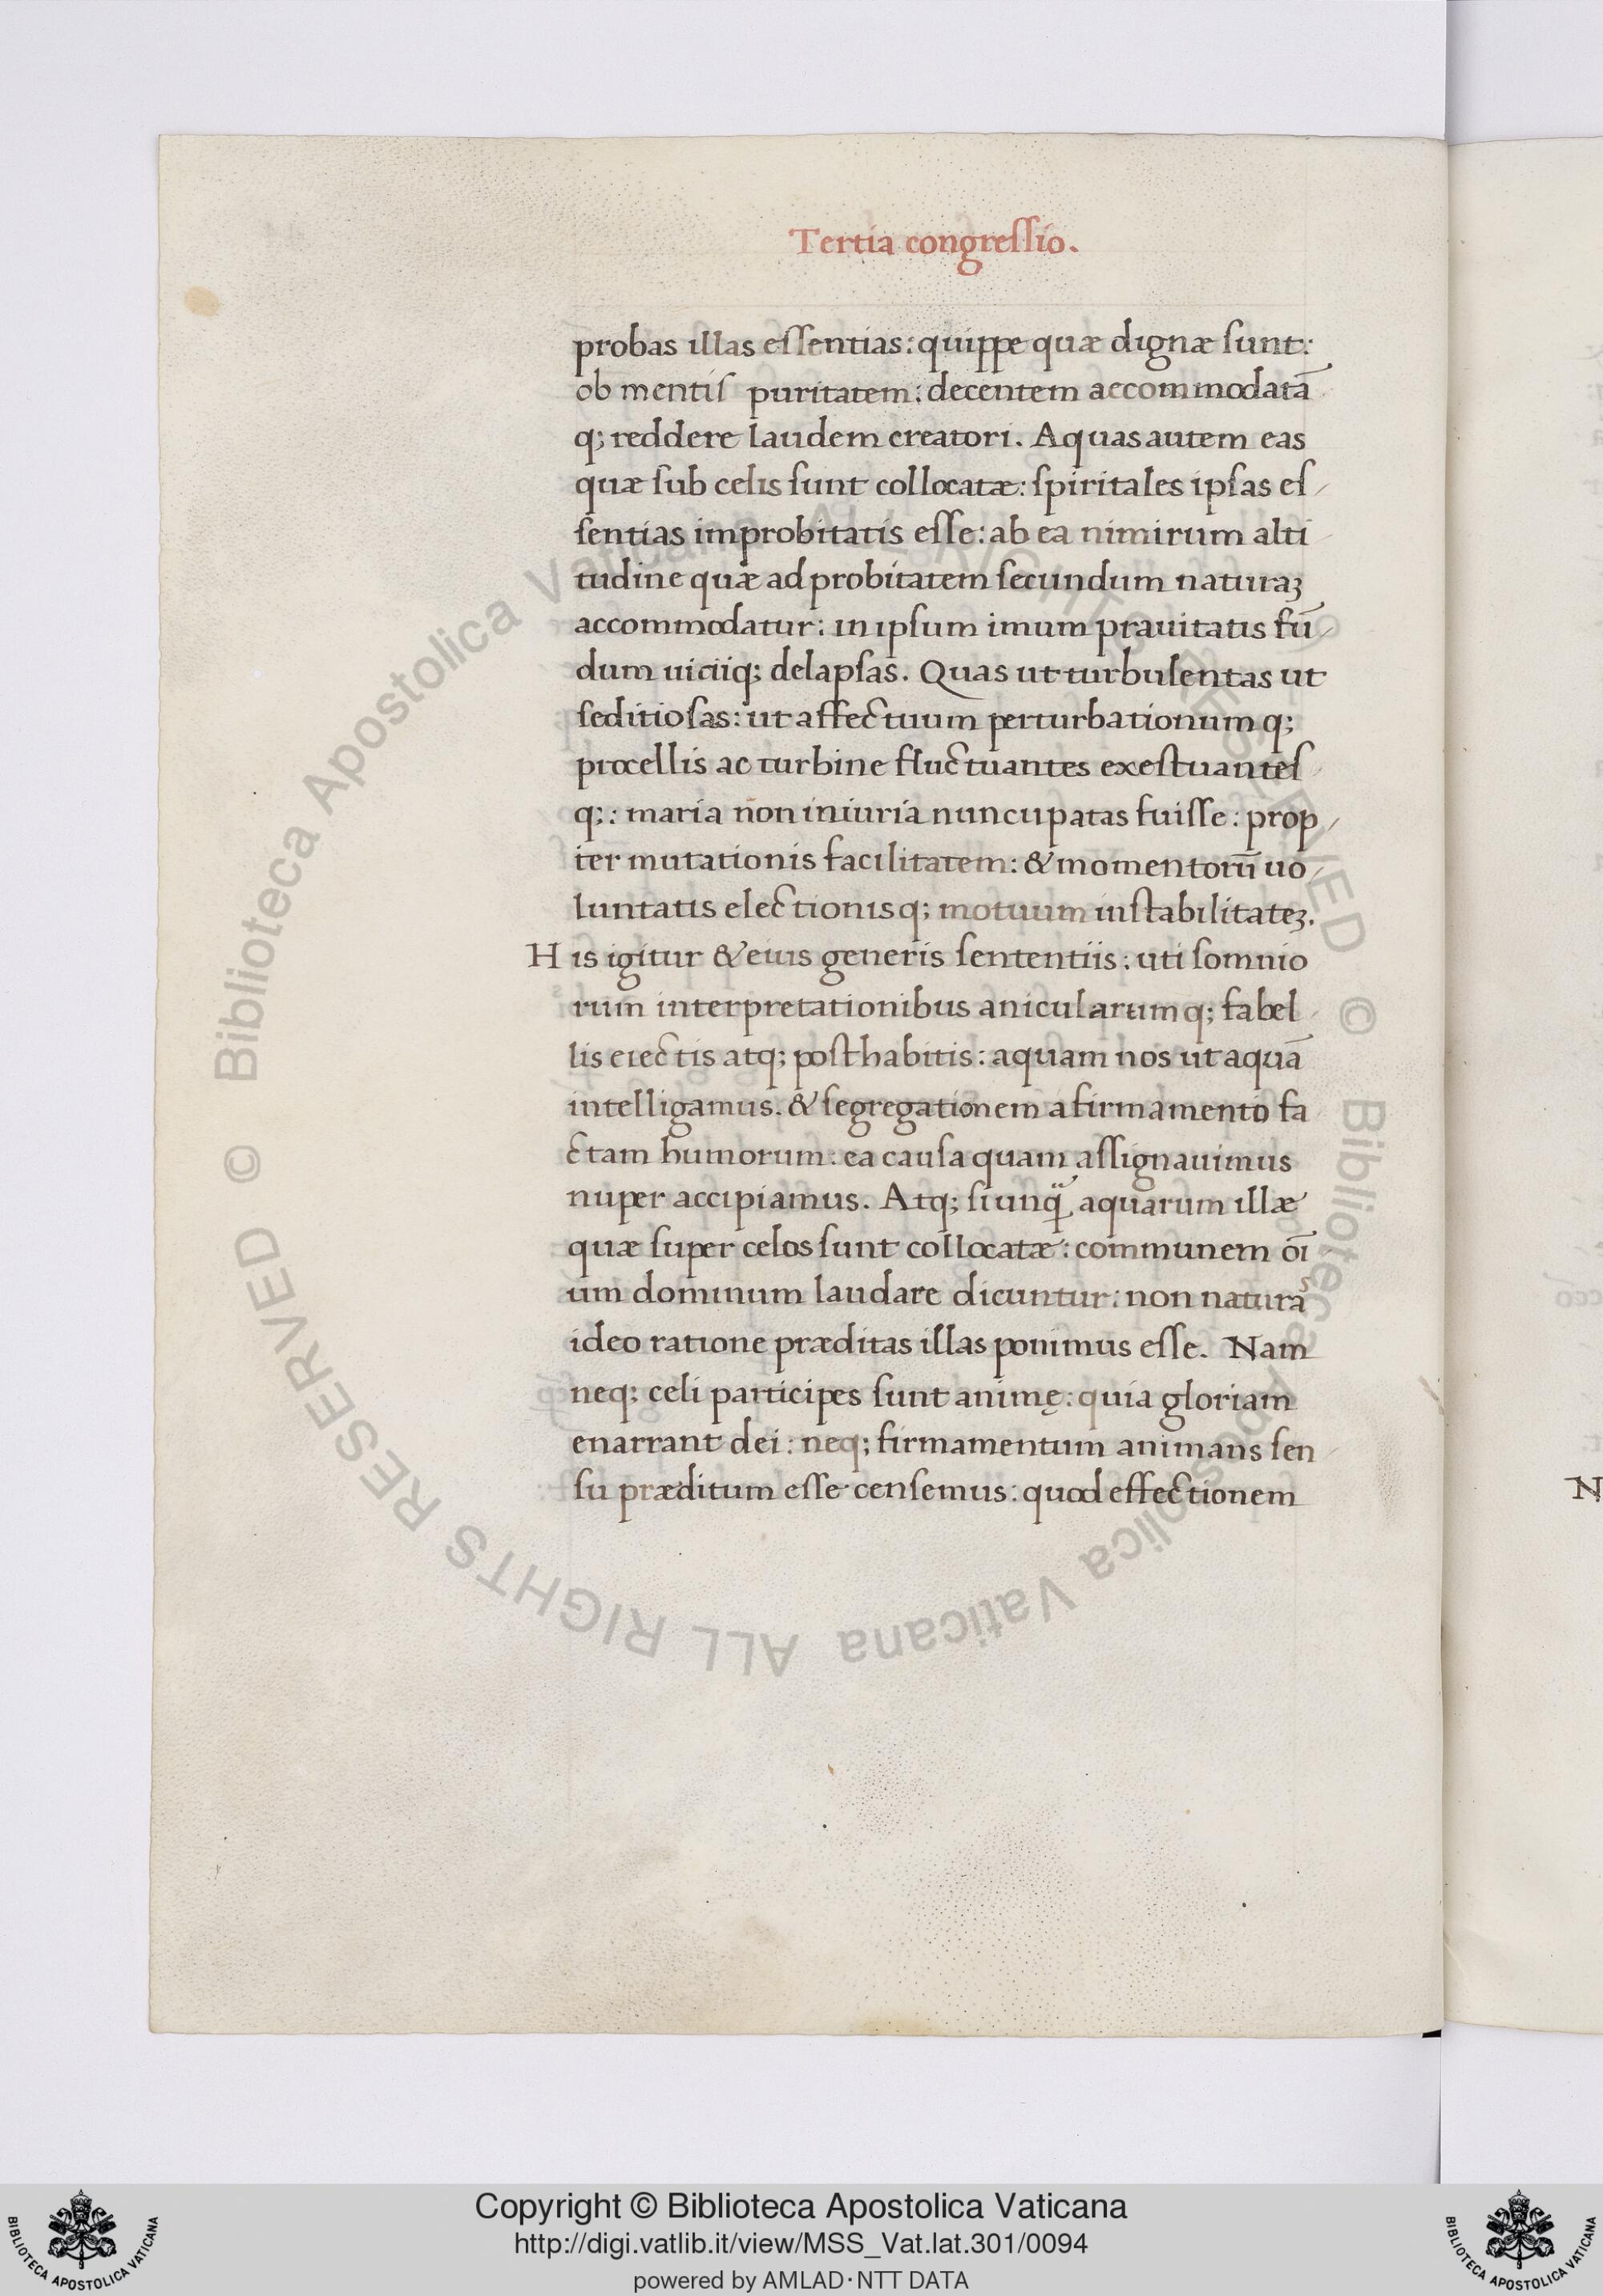 Tertia congreſſio.
probas illas eſſentias: quippe quæ dignæ ſunt:
ob mentiſ puritatem: decentem accommodatā
q; reddere laudem creatori. Aquas autem eas
quæ ſub celis ſunt collocatæ: ſpiritales ipſas eſ/
ſentias improbitatis eſſe: ab ea nimirum alti/
tudine quæ ad probitatem ſecundum naturaʒ
accommodatur: in ipſum imum prauitatis fū/
dum uitiiq; delapſas. Quas ut turbulentas ut
ſeditioſas: ut affectuum perturbationumq;
procellis ac turbine fluctuantes exeſtuanteſ/
q;: maria non iniuria nuncupatas fuiſſe: prop/
ter mutationis facilitatem: & momentorū uo/
luntatis electionisq; motuum inſtabilitateʒ.
His igitur & eius generis ſententiis: uti ſomnio
rum interpretationibus anicularumq; fabel/
lis eiectis atq; poſthabitis: aquam nos ut aquā
intelligamus. & ſegregationem a firmamento fa/
ctam humorum: ea cauſa quam aſſignauimus
nuper accipiamus. Atq; ſiunq̈ aquarum illæ
quæ ſuper celos ſunt collocatæ: communem oī/
um dominum laudare dicuntur: non naturaˢ
ideo ratione præditas illas ponimus eſſe. Nam
neq; celi participes ſunt animę: quia gloriam
enarrant dei: neq; firmamentum animans ſen/
ſu præditum eſſe cenſemus: quod effectionem
N
© Biblioteca Apostolica Vaticana ALL RIGHTS RESERVED © Biblioteca Apostolica Vaticana ALL RIGHTS RESERVED
Copyright © Biblioteca Apostolica Vaticana
http://digi.vatlib.it/view/MSS_Vat.lat.301/0094
powered by AMLAD·NTT DATA
BIBLIOTECA APOSTOLICA VATICANA
BIBLIOTECA APOSTOLICA VATICANA